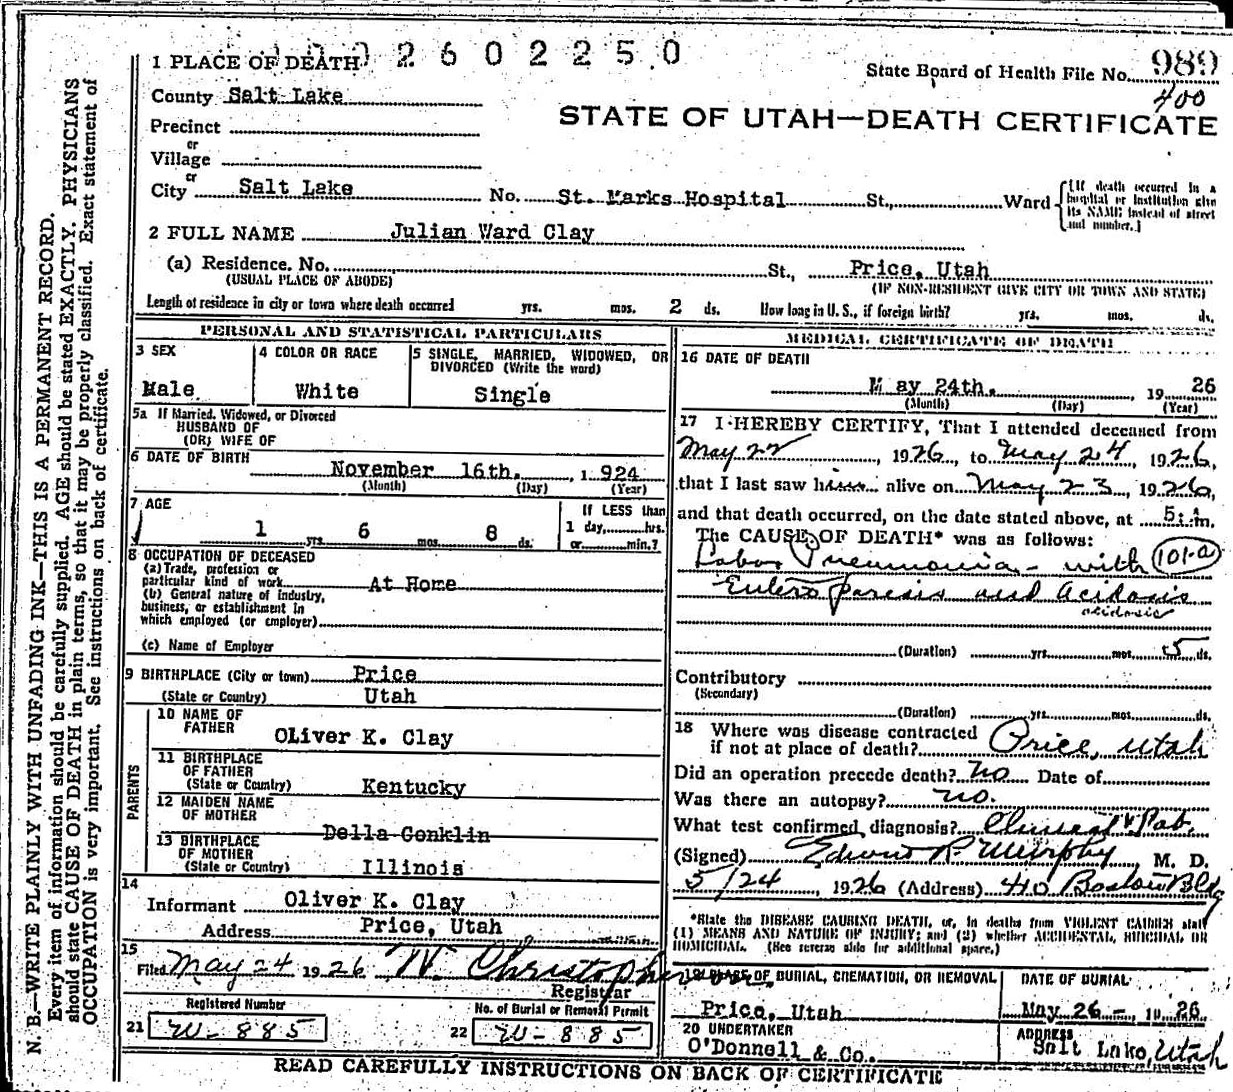 0 0 2 6 0 2 2 5 0
1 PLACE OF DEATH
State Board of Health File No. 989
400
County Salt Lake
STATE OF UTAH—DEATH CERTIFICATE
Precinct
or
Village
or
City Salt Lake No. St. Marks Hospital St., Ward
[If death occurred in a
hospital or institution give
its NAME instead of street
and number.]
2 FULL NAME Julian Ward Clay
(a) Residence. No. St., Price, Utah
(USUAL PLACE OF ABODE) (IF NON-RESIDENT GIVE CITY OR TOWN AND STATE)
Length of residence in city or town where death occurred yrs. mos. 2 ds. How long in U. S., if foreign birth? yrs. mos. ds.
PERSONAL AND STATISTICAL PARTICULARS
3 SEX
Male
4 COLOR OR RACE
White
5 SINGLE, MARRIED, WIDOWED, OR
DIVORCED (Write the word)
Single
5a If Married, Widowed, or Divorced
HUSBAND OF
(OR) WIFE OF
6 DATE OF BIRTH
November 16th. , 1924
(Month) (Day) (Year)
7 AGE
1 yrs. 6 mos. 8 ds.
If LESS than
1 day, hrs.
or min.?
8 OCCUPATION OF DECEASED
(a) Trade, profession or
particular kind of work At Home
(b) General nature of industry,
business, or establishment in
which employed (or employer)
(c) Name of Employer
9 BIRTHPLACE (City or town) Price
(State or Country) Utah
PARENTS
10 NAME OF
FATHER
Oliver K. Clay
11 BIRTHPLACE
OF FATHER
(State or Country) Kentucky
12 MAIDEN NAME
OF MOTHER
Della Conklin
13 BIRTHPLACE
OF MOTHER
(State or Country) Illinois
14
Informant Oliver K. Clay
Address Price, Utah
15
Filed May 24 1926 W. Christopherson
Registrar
Registered Number
21 W-885
No. of Burial or Removal Permit
22 W-885
MEDICAL CERTIFICATE OF DEATH
16 DATE OF DEATH
May 24th. , 1926
(Month) (Day) (Year)
17 I HEREBY CERTIFY, That I attended deceased from
May 22, 1926, to May 24, 1926,
that I last saw him alive on May 23, 1926,
and that death occurred, on the date stated above, at 5: m.
The CAUSE OF DEATH* was as follows:
Lobar Pneumonia - with 101-a
Entero paresis and Acidosis
acidosis
(Duration) yrs. mos. 5 ds.
Contributory
(Secondary)
(Duration) yrs. mos. ds.
18 Where was disease contracted
if not at place of death? Price, Utah
Did an operation precede death? No Date of
Was there an autopsy? no.
What test confirmed diagnosis? Clinical & Lab.
(Signed) Edward R. Murphy, M. D.
5/24, 1926 (Address) 410 Boston Bldg
*State the DISEASE CAUSING DEATH, or, in deaths from VIOLENT CAUSES state
(1) MEANS AND NATURE OF INJURY; and (2) whether ACCIDENTAL, SUICIDAL OR
HOMICIDAL. (See reverse side for additional space.)
19 PLACE OF BURIAL, CREMATION, OR REMOVAL
Price, Utah
DATE OF BURIAL
May 26-, 1926
20 UNDERTAKER
O'Donnell & Co.
ADDRESS
Salt Lake, Utah
READ CAREFULLY INSTRUCTIONS ON BACK OF CERTIFICATE
N. B.—WRITE PLAINLY WITH UNFADING INK—THIS IS A PERMANENT RECORD.
Every item of information should be carefully supplied. AGE should be stated EXACTLY. PHYSICIANS
should state CAUSE OF DEATH in plain terms, so that it may be properly classified. Exact statement of
OCCUPATION is very important. See instructions on back of certificate.